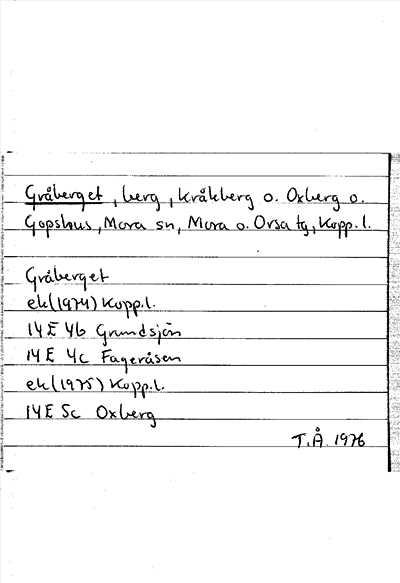 Gråberget, berg, Kråkberg o. Oxberg o.
Gopshus, Mora sn, Mora o. Orsa tg, Kopp. l.
Gråberget
ek(1974) Kopp.l.
14 E 4b Grundsjön
14 E 4c Fageråsen
ek(1975) Kopp.l.
14 E 5c Oxberg
T.Å. 1976